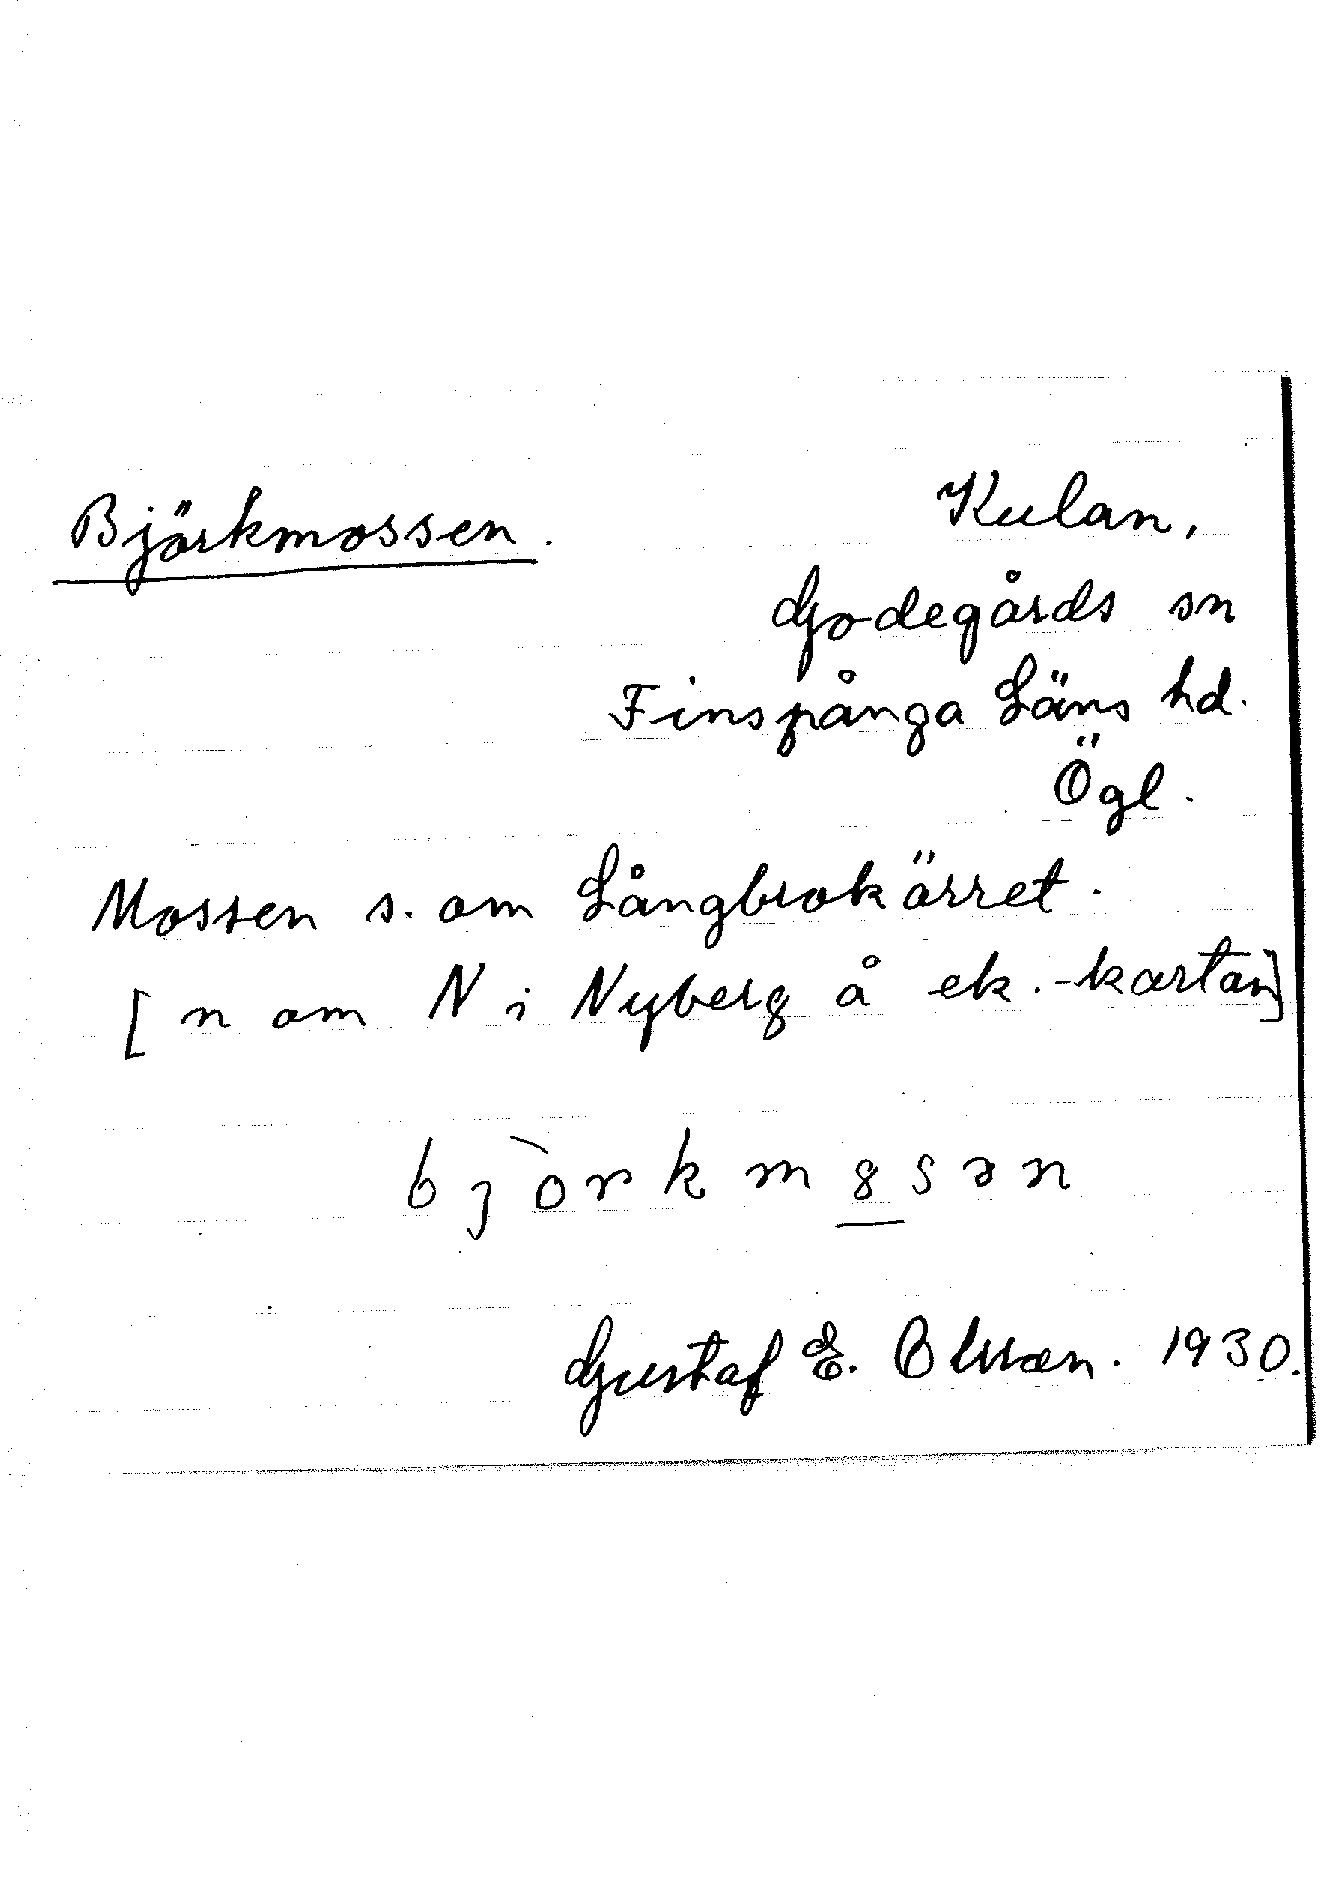 Björkmossen.
Kulan,
Godegårds sn
Finspånga Läns hd.
Ögl.
Mossen s. om Långbrokärret.
[n om N i Nyberg å ek.-kartan]
Gustaf E. Olsson. 1930.